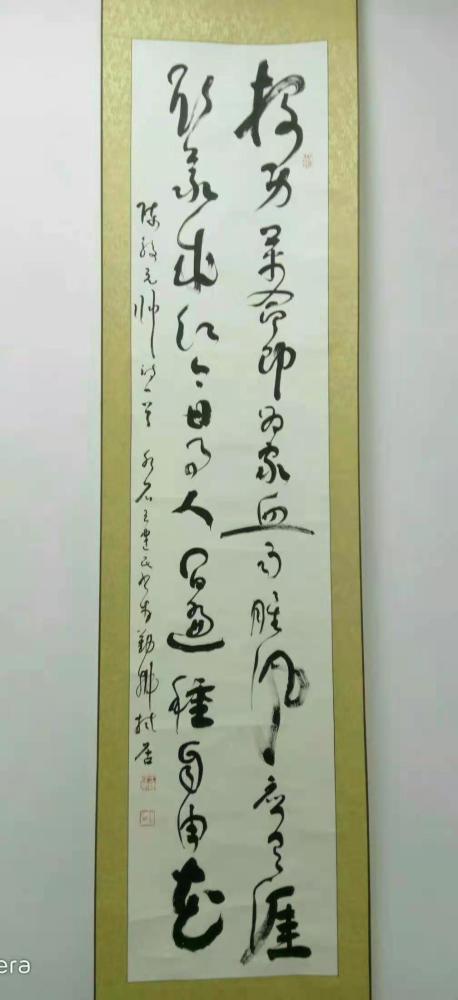 投身革命即为家血雨腥风应有涯
取义成仁今日事人间遍种自由花
陈毅元帅诗一首 王建民书 村居
era